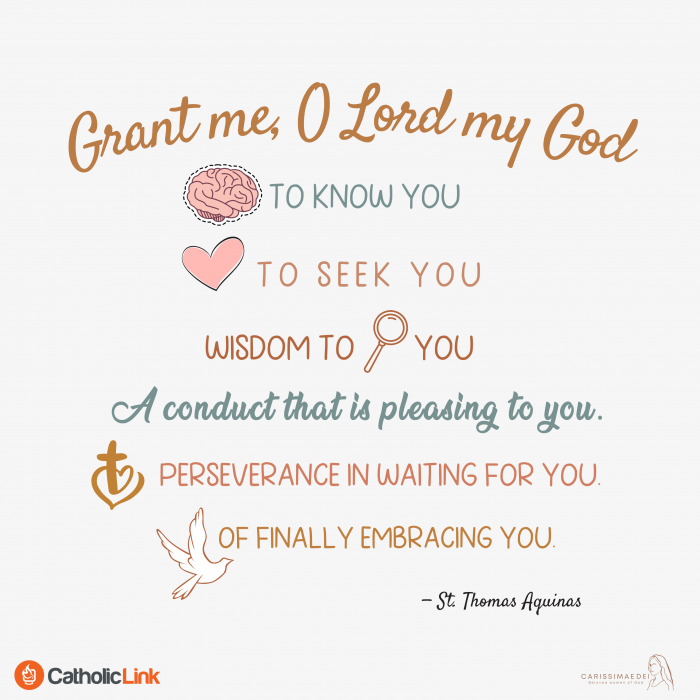 Grant me, O Lord my God
TO KNOW YOU
TO SEEK YOU
WISDOM TO YOU
A conduct that is pleasing to you.
PERSEVERANCE IN WAITING FOR YOU.
OF FINALLY EMBRACING YOU.
– St. Thomas Aquinas
CatholicLink
CARISSIMAEDEI
Beloved women of God